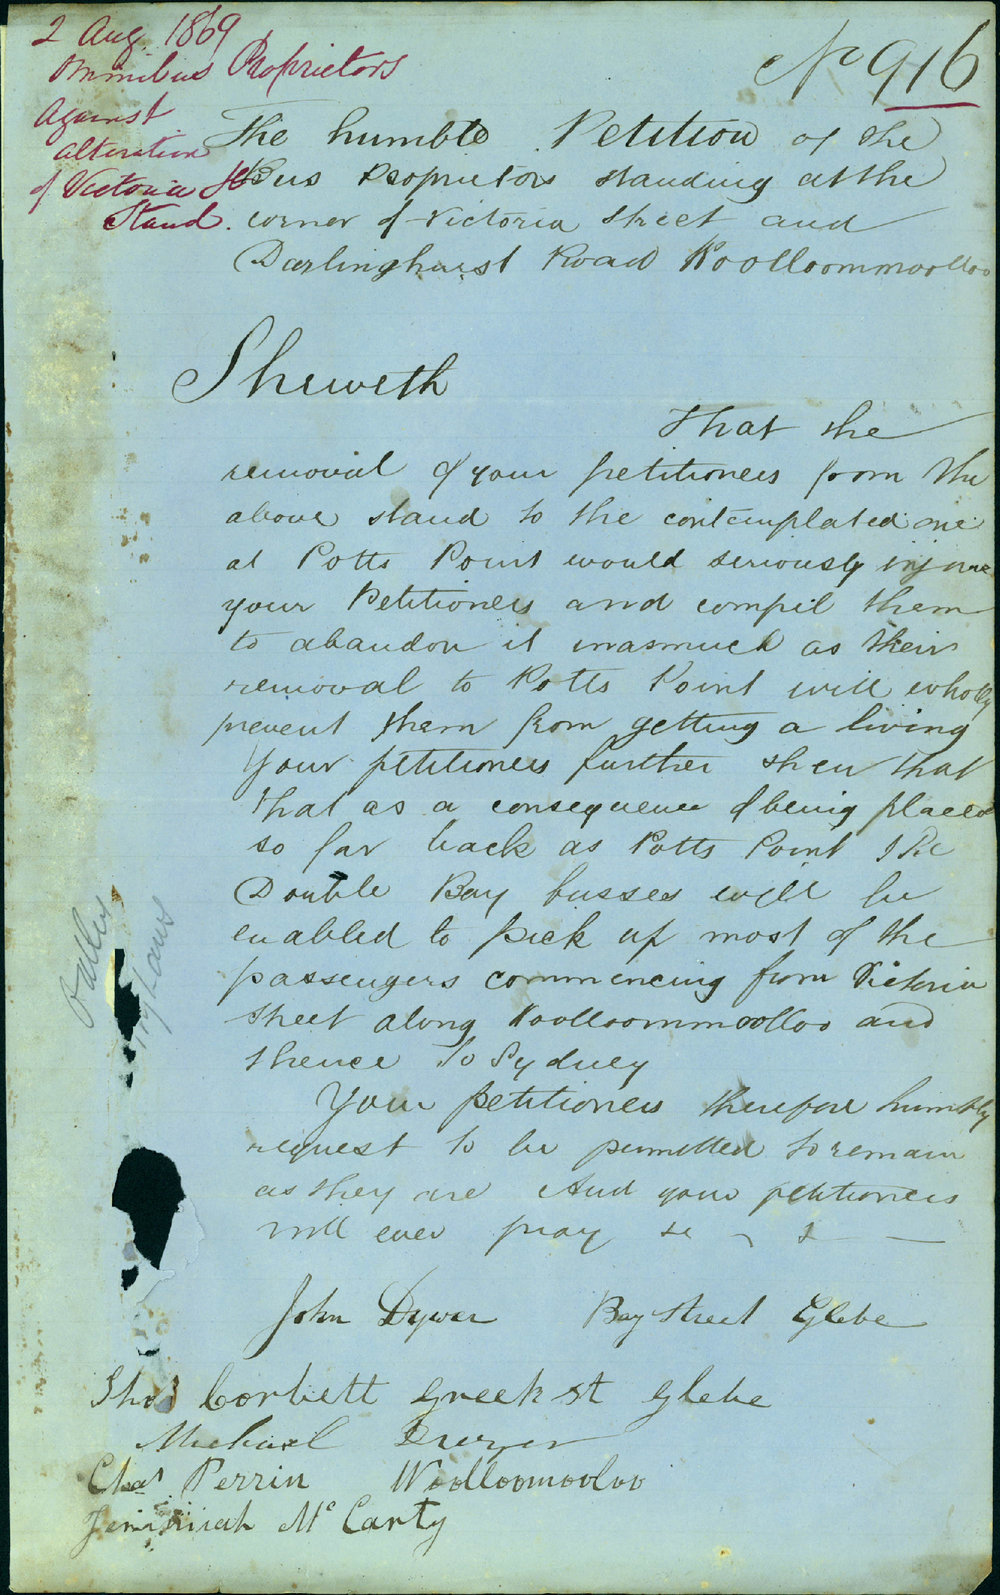 2 Aug. 1869
Omnibus Proprietors
against
alteration
of Victoria St
Stand.
No 916
The humble Petition of the
Bus Proprietors standing at the
corner of Victoria Street and
Darlinghurst Road Woolloommoolloo
Sheweth
That the
removal of your petitioners from the
above stand to the contemplated one
at Potts Point would seriously injure
your Petitioners and compel them
to abandon it inasmuch as their
removal to Potts Point will wholly
prevent them from getting a living
Your petitioners further shew that
that as a consequence of being placed
so far back as Potts Point the
Double Bay busses will be
enabled to pick up most of the
passengers commencing from Victoria
Street along Woolloommoolloo and
thence to Sydney
Your petitioners therefore humbly
request to be permitted to remain
as they are And your petitioners
will ever pray &c
John Dywer Bay Street Glebe
Thos Corbett Greek st Glebe
Michael
Chas. Perrin Woolloomooloo
Jerimiah McCarty